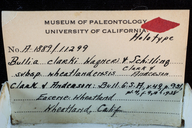 MUSEUM OF PALEONTOLOGY
UNIVERSITY OF CALIFORNIA
Holotype
No. A.1889/11299
Bullia clarki Wagner & Schilling
subsp. wheatlandensis Clark & Anderson
Clark & Anderson: Bull. G.S.A.,
Eocene: Wheatland
Wheatland, Calif.